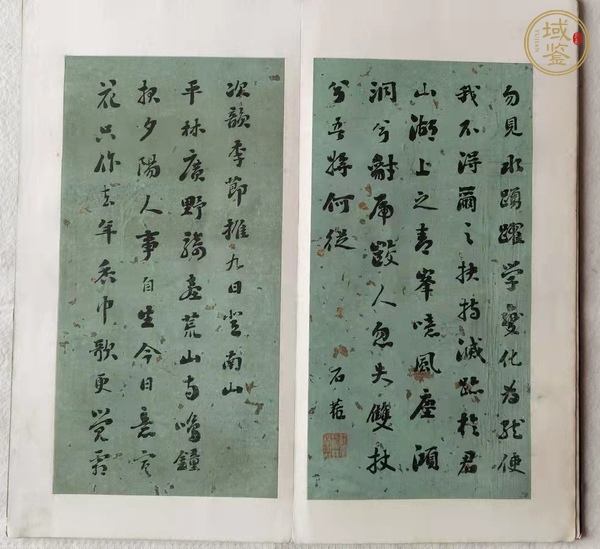 域鉴
YUJIAN
勿見水踴躍学變化为龙使
我不得爾之扶持滅跡於君
山湖上之青峯噫風塵澒
洞兮豺虎齩人忽失雙杖
兮吾將何從
石菴
次韻李節推九日登南山
平林廣野騎臺荒山寺鳴鐘
報夕陽人事自生今日意寒
花只作去年香巾欹更覺霜